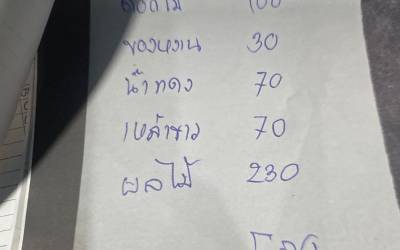 ดอกไม้ 100
ของหวาน 30
น้ำแดง 70
เหล้าขาว 70
ผลไม้ 230